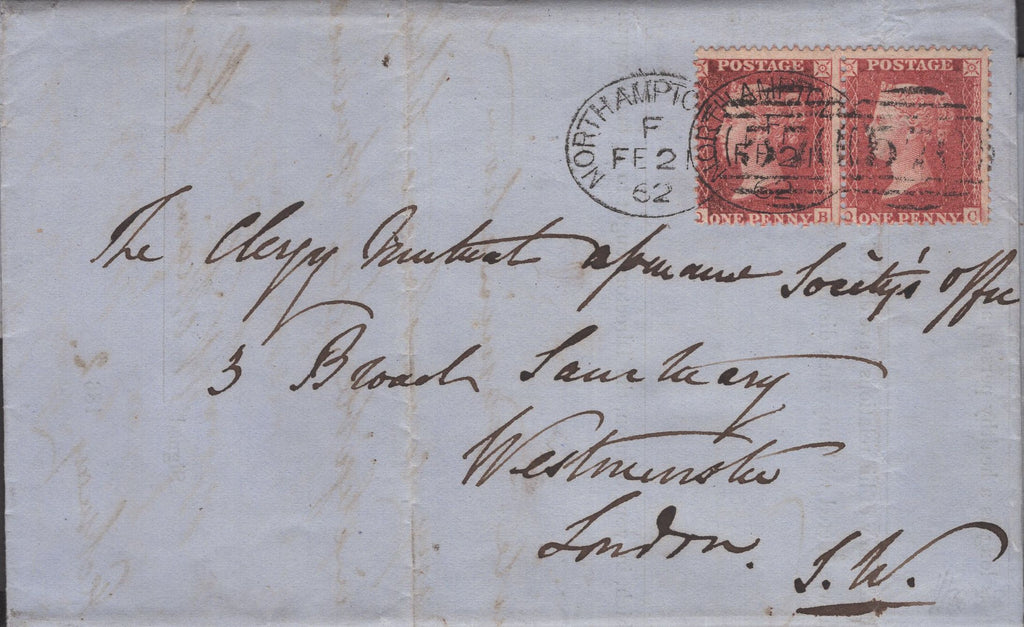 POSTAGE POSTAGE
NORTHAMPTON NORTHAMPTON
F F
FE 21 FE 21
62 62
ONE PENNY B ONE PENNY C
The Clergy Mutual Assurance Society's Office
3 Broad Sanctuary
Westminster
London.
S.W.